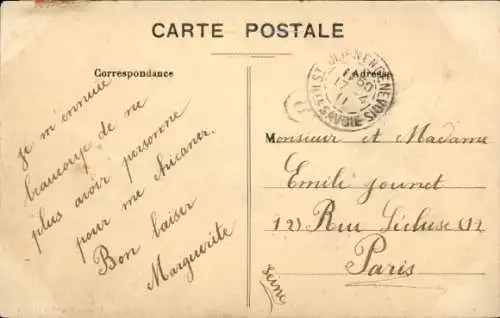 CARTE POSTALE
Correspondance
Adresse
ST JULIEN EN GENEVOIS
HTE SAVOIE
17 - 4
11
je m'ennuie
beaucoup de ne
plus avoir personne
pour me chicaner.
Bon baiser
Marguerite
Monsieur et Madame
Emile Jounet
12) Rue Lécluse (12
Paris
Seine